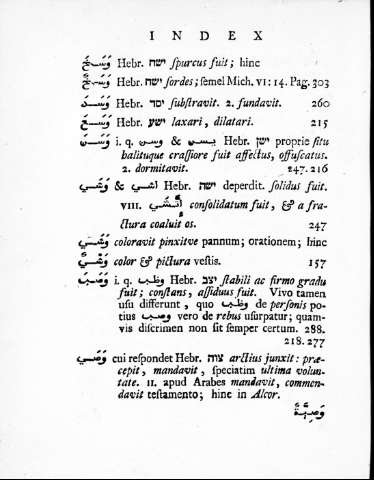 INDEX
وَسَخَ Hebr. ישח ſpurcus fuit; hinc
وَسَخٌ Hebr. ישח ſordes; ſemel Mich. VI: 14. Pag. 303
وَسَدَ Hebr. יסד ſubſtravit. 2. fundavit. 260
وَسِعَ Hebr. ישע laxari, dilatari. 215
وَسَنَ i. q. يسن & وسن Hebr. ישן proprie ſitu
balituque craſſiore fuit affectus, offuſcatus.
2. dormitavit. 247. 216
وَشَى & اشى Hebr. ישה deperdit. ſolidus fuit.
VIII. conſolidatum fuit, & a fra-
ctura coaluit os. 247
وَشَى coloravit pinxitve pannum; orationem; hinc
وَشْىٌ color & pictura veſtis. 157
وَصَبَ i. q. وظب Hebr. יצב ſtabili ac firmo gradu
fuit; conſtans, aſſiduus fuit. Vivo tamen
uſu differunt, quo وظب de perſonis po-
tius وصب vero de rebus uſurpatur; quam-
vis diſcrimen non ſit ſemper certum. 288.
218. 277
وَصَى cui reſpondet Hebr. צוה arctius junxit: præ-
cepit, mandavit, ſpeciatim ultima volun-
tate. II. apud Arabes mandavit, commen-
davit teſtamento; hinc in Alcor.
وَصِيَّةٌ